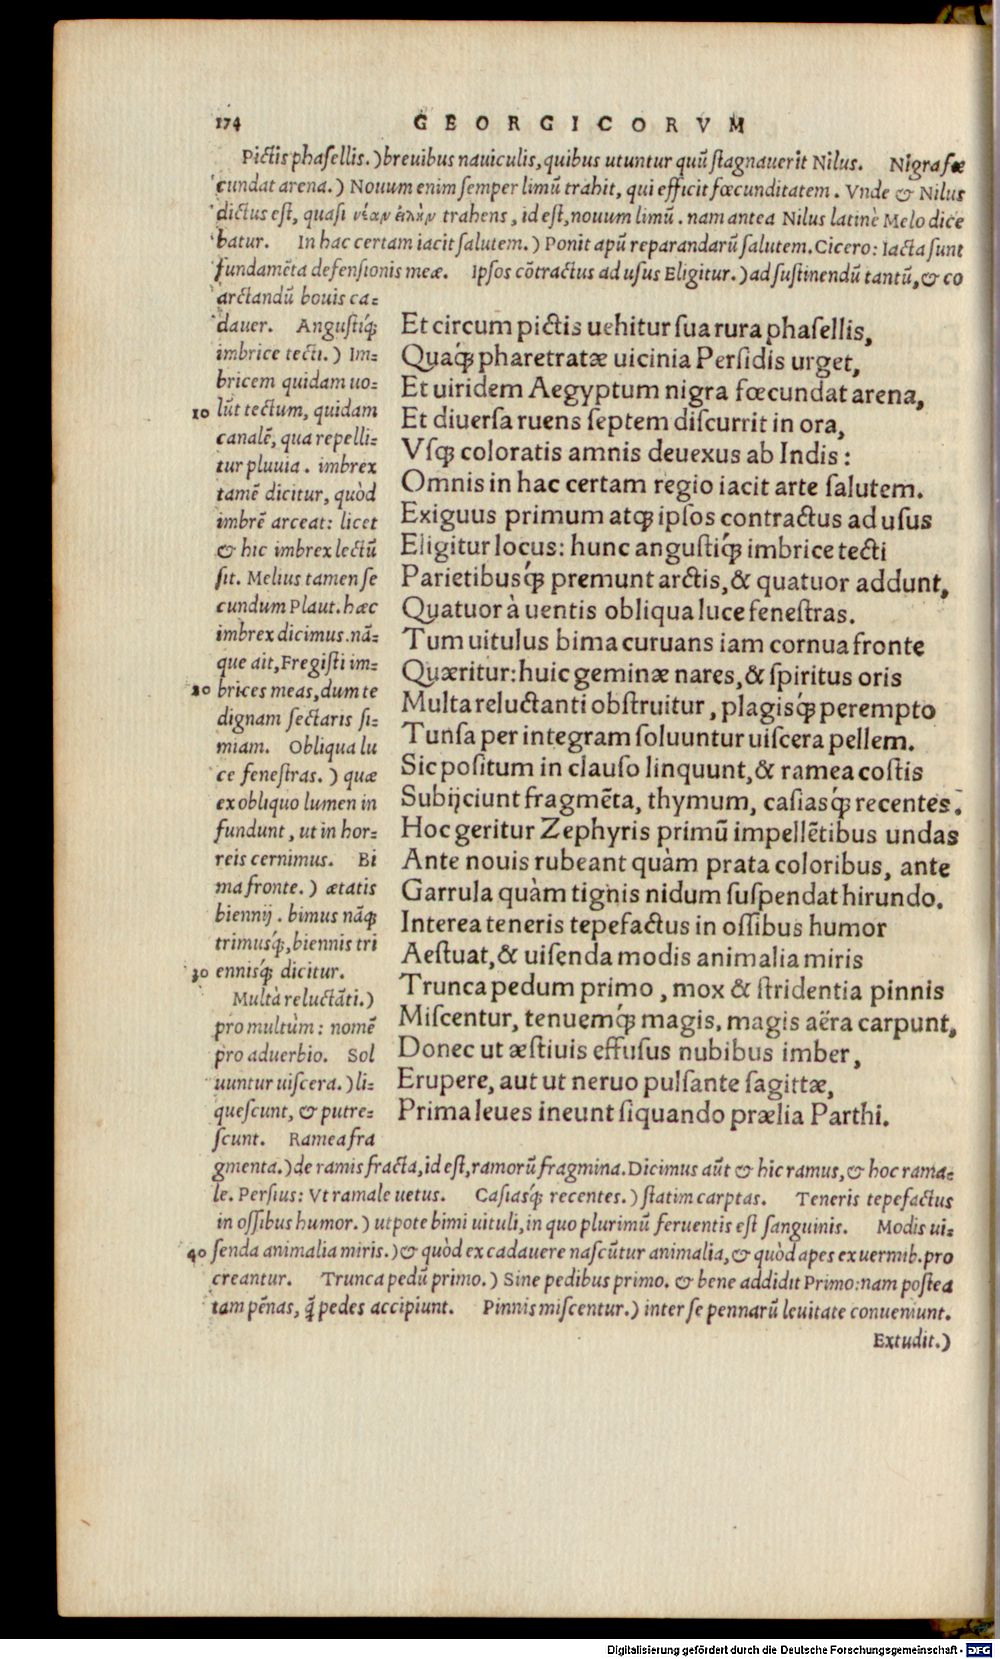 174 GEORGICORVM
Pictis phaſellis.) breuibus nauiculis, quibus utuntur quũ ſtagnauerit Nilus. Nigra fœ
cundat arena.) Nouum enim ſemper limũ trahit, qui efficit fœcunditatem. Vnde & Nilus
dictus eſt, quaſi νέαν trahens, id eſt, nouum limũ. nam antea Nilus latinè Melo dice
batur. In hac certam iacit ſalutem.) Ponit apũ reparandarũ ſalutem. Cicero: Iacta ſunt
fundamẽta defenſionis meæ. Ipſos cõtractus ad uſus Eligitur.) ad ſuſtinendũ tantũ, & co
arctandũ bouis ca=
dauer. Anguſtiq́;
imbrice tecti.) Im=
bricem quidam uo=
10 lũt tectum, quidam
canalẽ, qua repelli=
tur pluuia. imbrex
tamẽ dicitur, quòd
imbrẽ arceat: licet
& hic imbrex lectũ
ſit. Melius tamen ſe
cundum Plaut. hæc
imbrex dicimus. nã=
que ait, Fregiſti im=
20 brices meas, dum te
dignam ſectaris ſi=
miam. Obliqua lu
ce feneſtras.) quæ
ex obliquo lumen in
fundunt, ut in hor=
reis cernimus. Bi
ma fronte.) ætatis
biennij. bimus nãq;
trimusq́;, biennis tri
30 ennisq́; dicitur.
Multà reluctãti.)
pro multùm: nomẽ
pro aduerbio. Sol
uuntur uiſcera.) li=
queſcunt, & putre=
ſcunt. Ramea fra
Et circum pictis uehitur ſua rura phaſellis,
Quaq́; pharetratæ uicinia Perſidis urget,
Et uiridem Aegyptum nigra fœcundat arena,
Et diuerſa ruens ſeptem diſcurrit in ora,
Vſq; coloratis amnis deuexus ab Indis:
Omnis in hac certam regio iacit arte ſalutem.
Exiguus primum atq; ipſos contractus ad uſus
Eligitur locus: hunc anguſtiq́; imbrice tecti
Parietibusq́; premunt arctis, & quatuor addunt,
Quatuor à uentis obliqua luce feneſtras.
Tum uitulus bima curuans iam cornua fronte
Quæritur: huic geminæ nares, & ſpiritus oris
Multa reluctanti obſtruitur, plagisq́; perempto
Tunſa per integram ſoluuntur uiſcera pellem.
Sic poſitum in clauſo linquunt, & ramea coſtis
Subijciunt fragmẽta, thymum, caſiasq́; recentes.
Hoc geritur Zephyris primũ impellẽtibus undas
Ante nouis rubeant quàm prata coloribus, ante
Garrula quàm tignis nidum ſuſpendat hirundo.
Interea teneris tepefactus in oſſibus humor
Aeſtuat, & uiſenda modis animalia miris
Trunca pedum primo, mox & ſtridentia pinnis
Miſcentur, tenuemq́; magis, magis aëra carpunt,
Donec ut æſtiuis effuſus nubibus imber,
Erupere, aut ut neruo pulſante ſagittæ,
Prima leues ineunt ſiquando prælia Parthi.
gmenta.) de ramis fracta, id eſt, ramorũ fragmina. Dicimus aũt & hic ramus, & hoc rama=
le. Perſius: Vt ramale uetus. Caſiasq́; recentes.) ſtatim carptas. Teneris tepefactus
in oſſibus humor.) utpote bimi uituli, in quo plurimũ feruentis eſt ſanguinis. Modis ui=
40 ſenda animalia miris.) & quòd ex cadauere naſcũtur animalia, & quòd apes ex uermib. pro
creantur. Trunca pedũ primo.) Sine pedibus primo. & bene addidit Primo: nam poſtea
tam pẽnas, q̃ pedes accipiunt. Pinnis miſcentur.) inter ſe pennarũ leuitate conueniunt.
Extudit.)
Digitalisierung gefördert durch die Deutsche Forschungsgemeinschaft - DFG